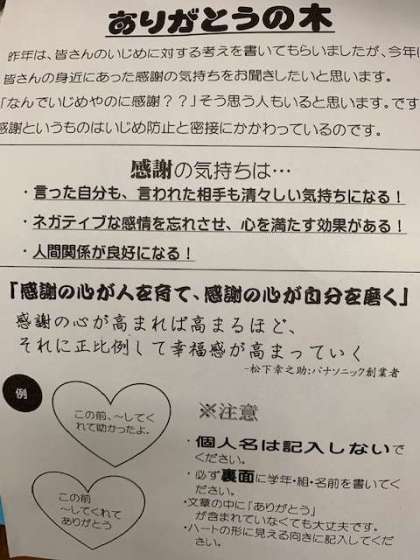 ありがとうの木
昨年は、皆さんのいじめに対する考えを書いてもらいましたが、今年は
皆さんの身近にあった感謝の気持ちをお聞きしたいと思います。
「なんでいじめやのに感謝??」そう思う人もいると思います。です
感謝というものはいじめ防止と密接にかかわっているのです。
感謝の気持ちは…
・言った自分も、言われた相手も清々しい気持ちになる!
・ネガティブな感情を忘れさせ、心を満たす効果がある!
・人間関係が良好になる!
「感謝の心が人を育て、感謝の心が自分を磨く」
感謝の心が高まれば高まるほど、
それに正比例して幸福感が高まっていく
-松下幸之助:パナソニック創業者
例
この前、~してく
れて助かったよ。
この前
~してくれて
ありがとう
※注意
・個人名は記入しないで
ください。
・必ず裏面に学年・組・名前を書いてく
ださい。
・文章の中に「ありがとう」
が含まれていなくても大丈夫です。
・ハートの形に見える向きに記入してくだ
さい。